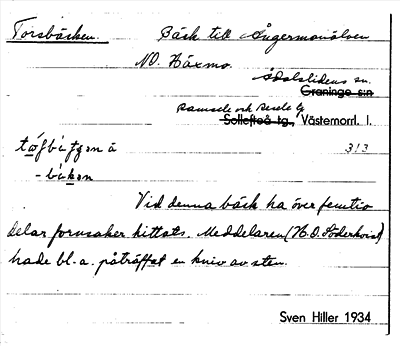 Torsbäcken. Bäck till Ångermanälven
NO. Häxmo.
Ådalslidens sn.
Graninge s:n
Ramsele och Resele tg
Sollefteå tg., Västernorrl. l.
313
-bäkən
Vid denna bäck ha över femtio
delar fornsaker hittats. Meddelaren (N.O. Söderkvist)
hade bl. a. påträffat en kniv av sten.
Sven Hiller 1934